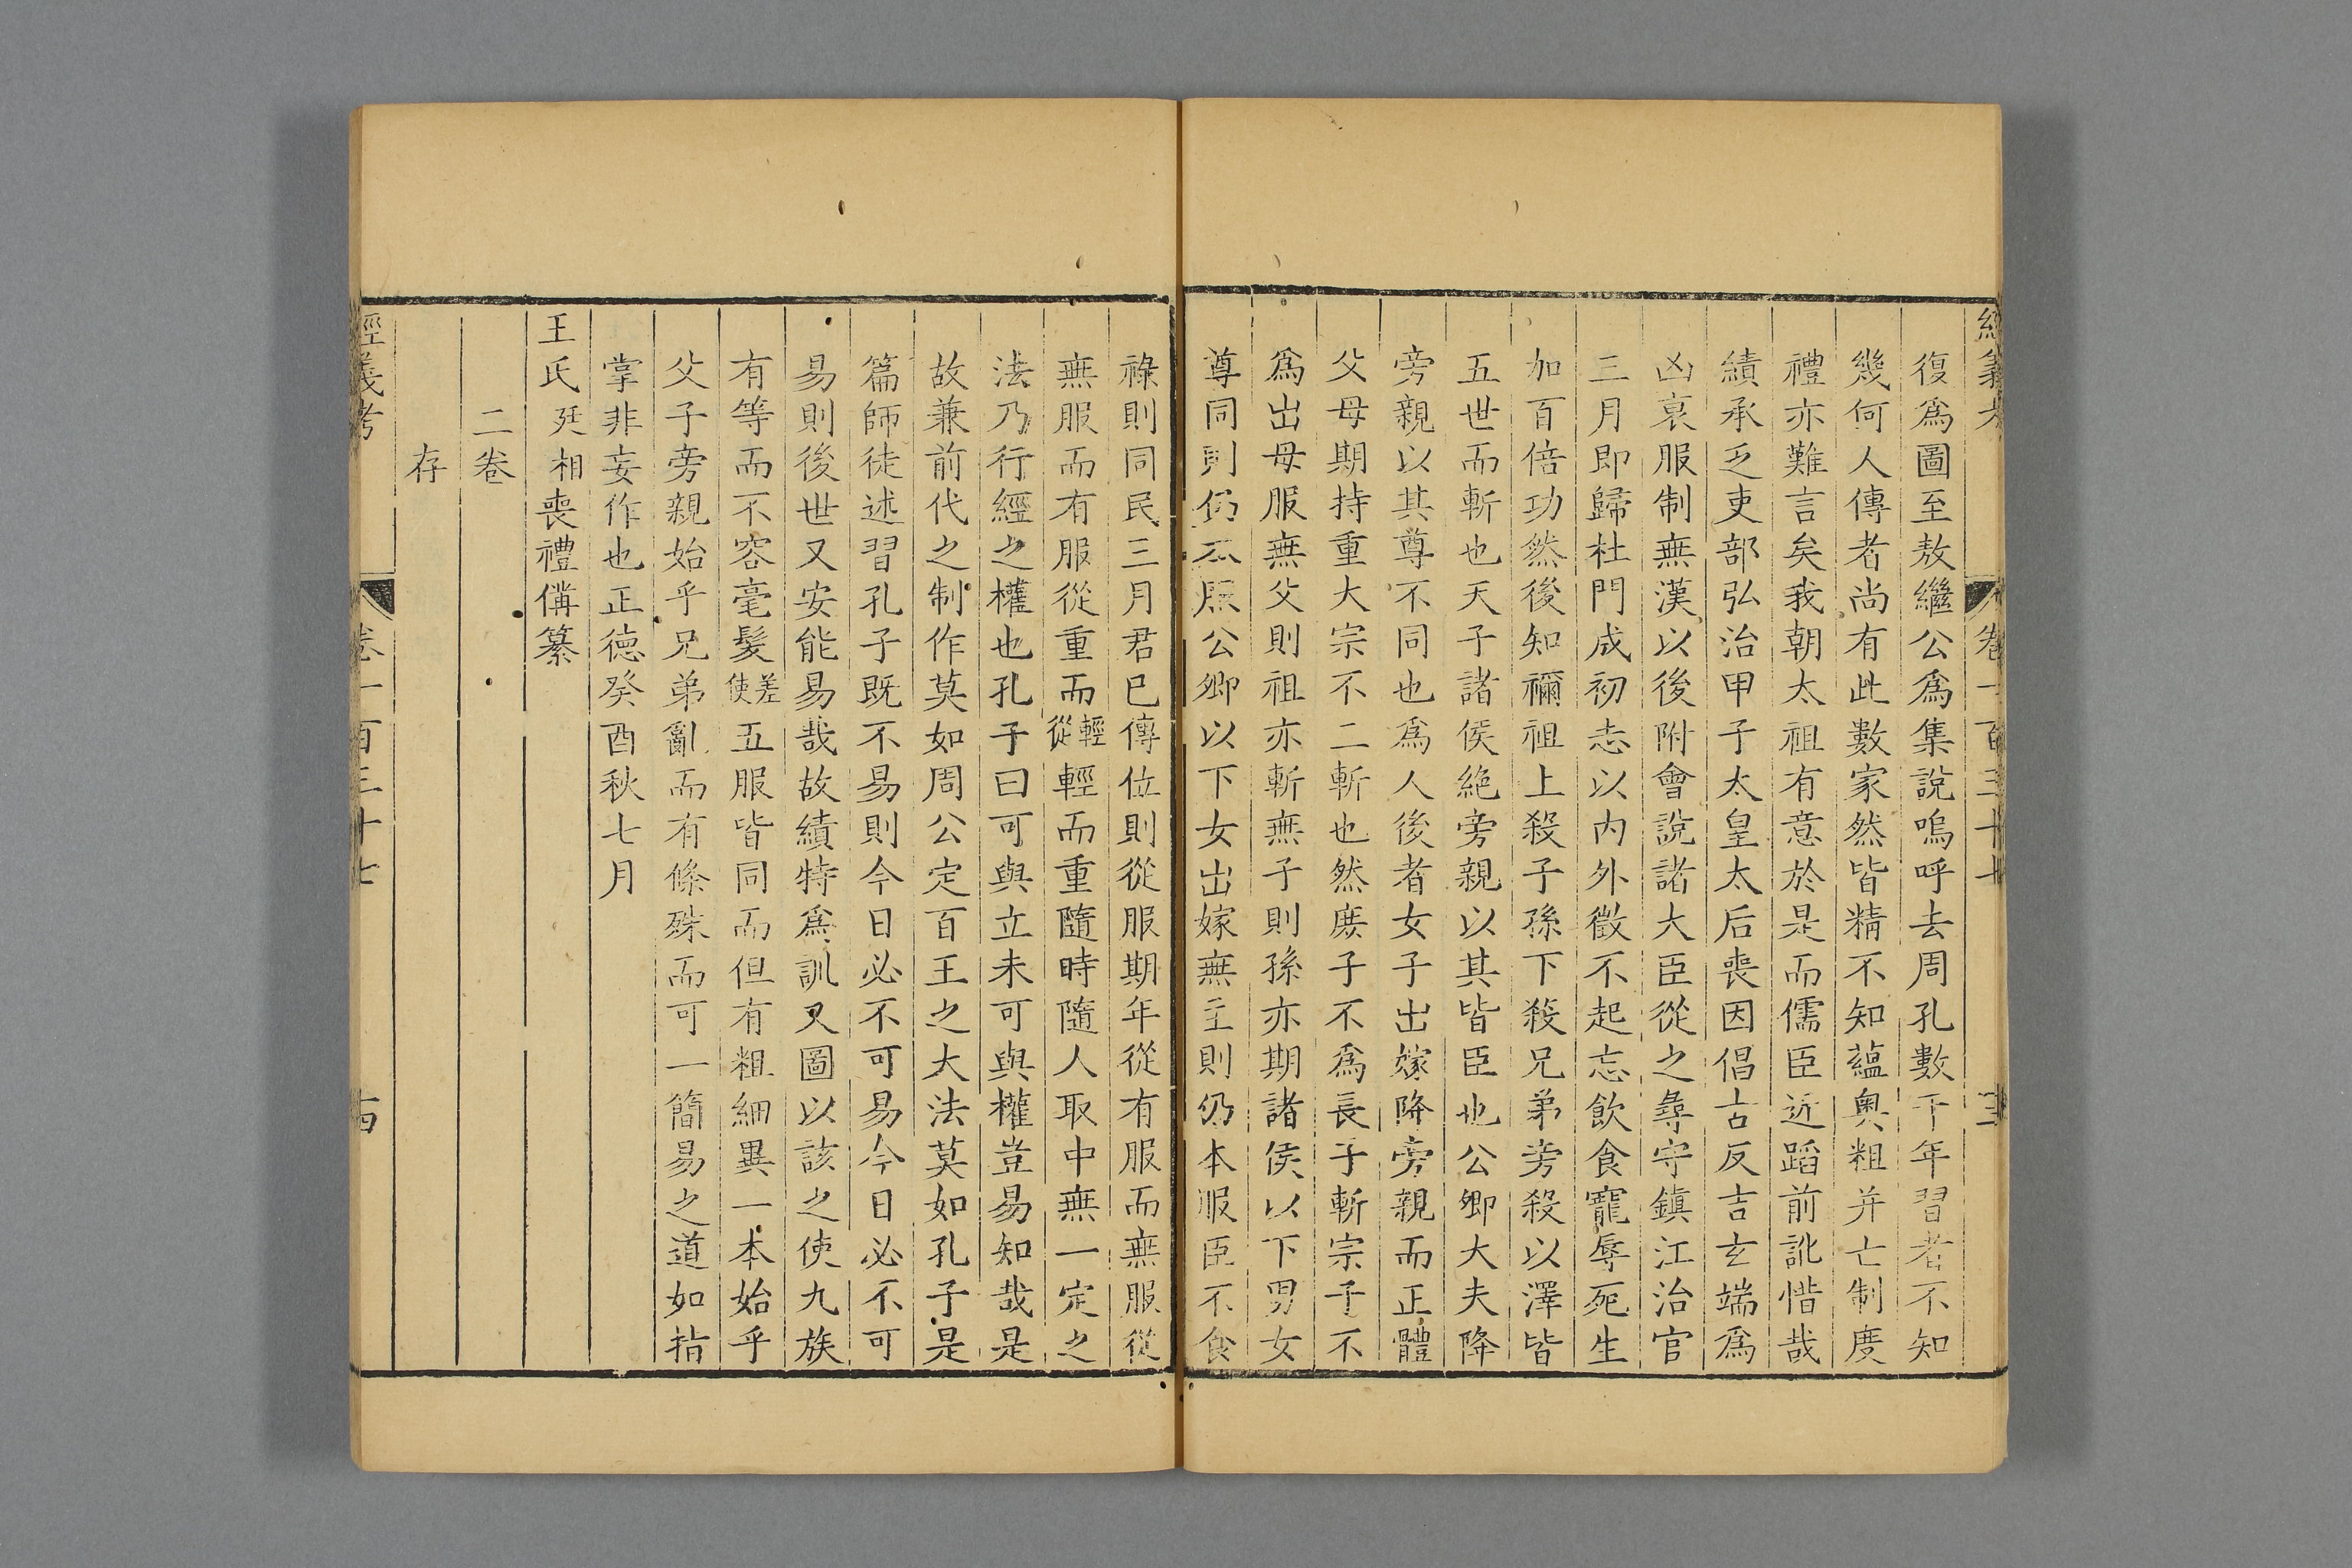 復爲圖至敖繼公爲集說嗚呼去周孔數千年習者不知
幾何人傳者尚有此數家然皆精不知蘊奧粗并亡制度
禮亦難言矣我朝太祖有意於是而儒臣近蹈前訛惜哉
績承乏吏部弘治甲子太皇太后喪因倡古反吉玄端爲
凶哀服制無漢以後附會說諸大臣從之尋守鎮江治官
三月即歸杜門成初志以内外徵不起忘飲食寵辱死生
加百倍功然後知禰祖上殺子孫下殺兄弟旁殺以澤皆
五世而斬也天子諸侯絶旁親以其皆臣也公卿大夫降
旁親以其尊不同也爲人後者女子出嫁降旁親而正體
父母期持重大宗不二斬也然庶子不爲長子斬宗子不
爲出母服無父則祖亦斬無子則孫亦期諸侯以下男女
尊同則仍不厭公卿以下女出嫁無主則仍本服臣不食
祿則同民三月君已傳位則從服期年從有服而無服從
無服而有服從重而輕從輕而重隨時隨人取中無一定之
法乃行經之權也孔子曰可與立未可與權豈易知哉是
故兼前代之制作莫如周公定百王之大法莫如孔子是
篇師徒述習孔子既不易則今日必不可易今日必不可
易則後世又安能易哉故績特爲訓又圖以該之使九族
有等而不容毫髮差使五服皆同而但有粗細異一本始乎
父子旁親始乎兄弟亂而有條殊而可一簡易之道如指
掌非妄作也正德癸酉秋七月
王氏廷相喪禮備纂
二卷
存
經義考
卷一百三十七
十四